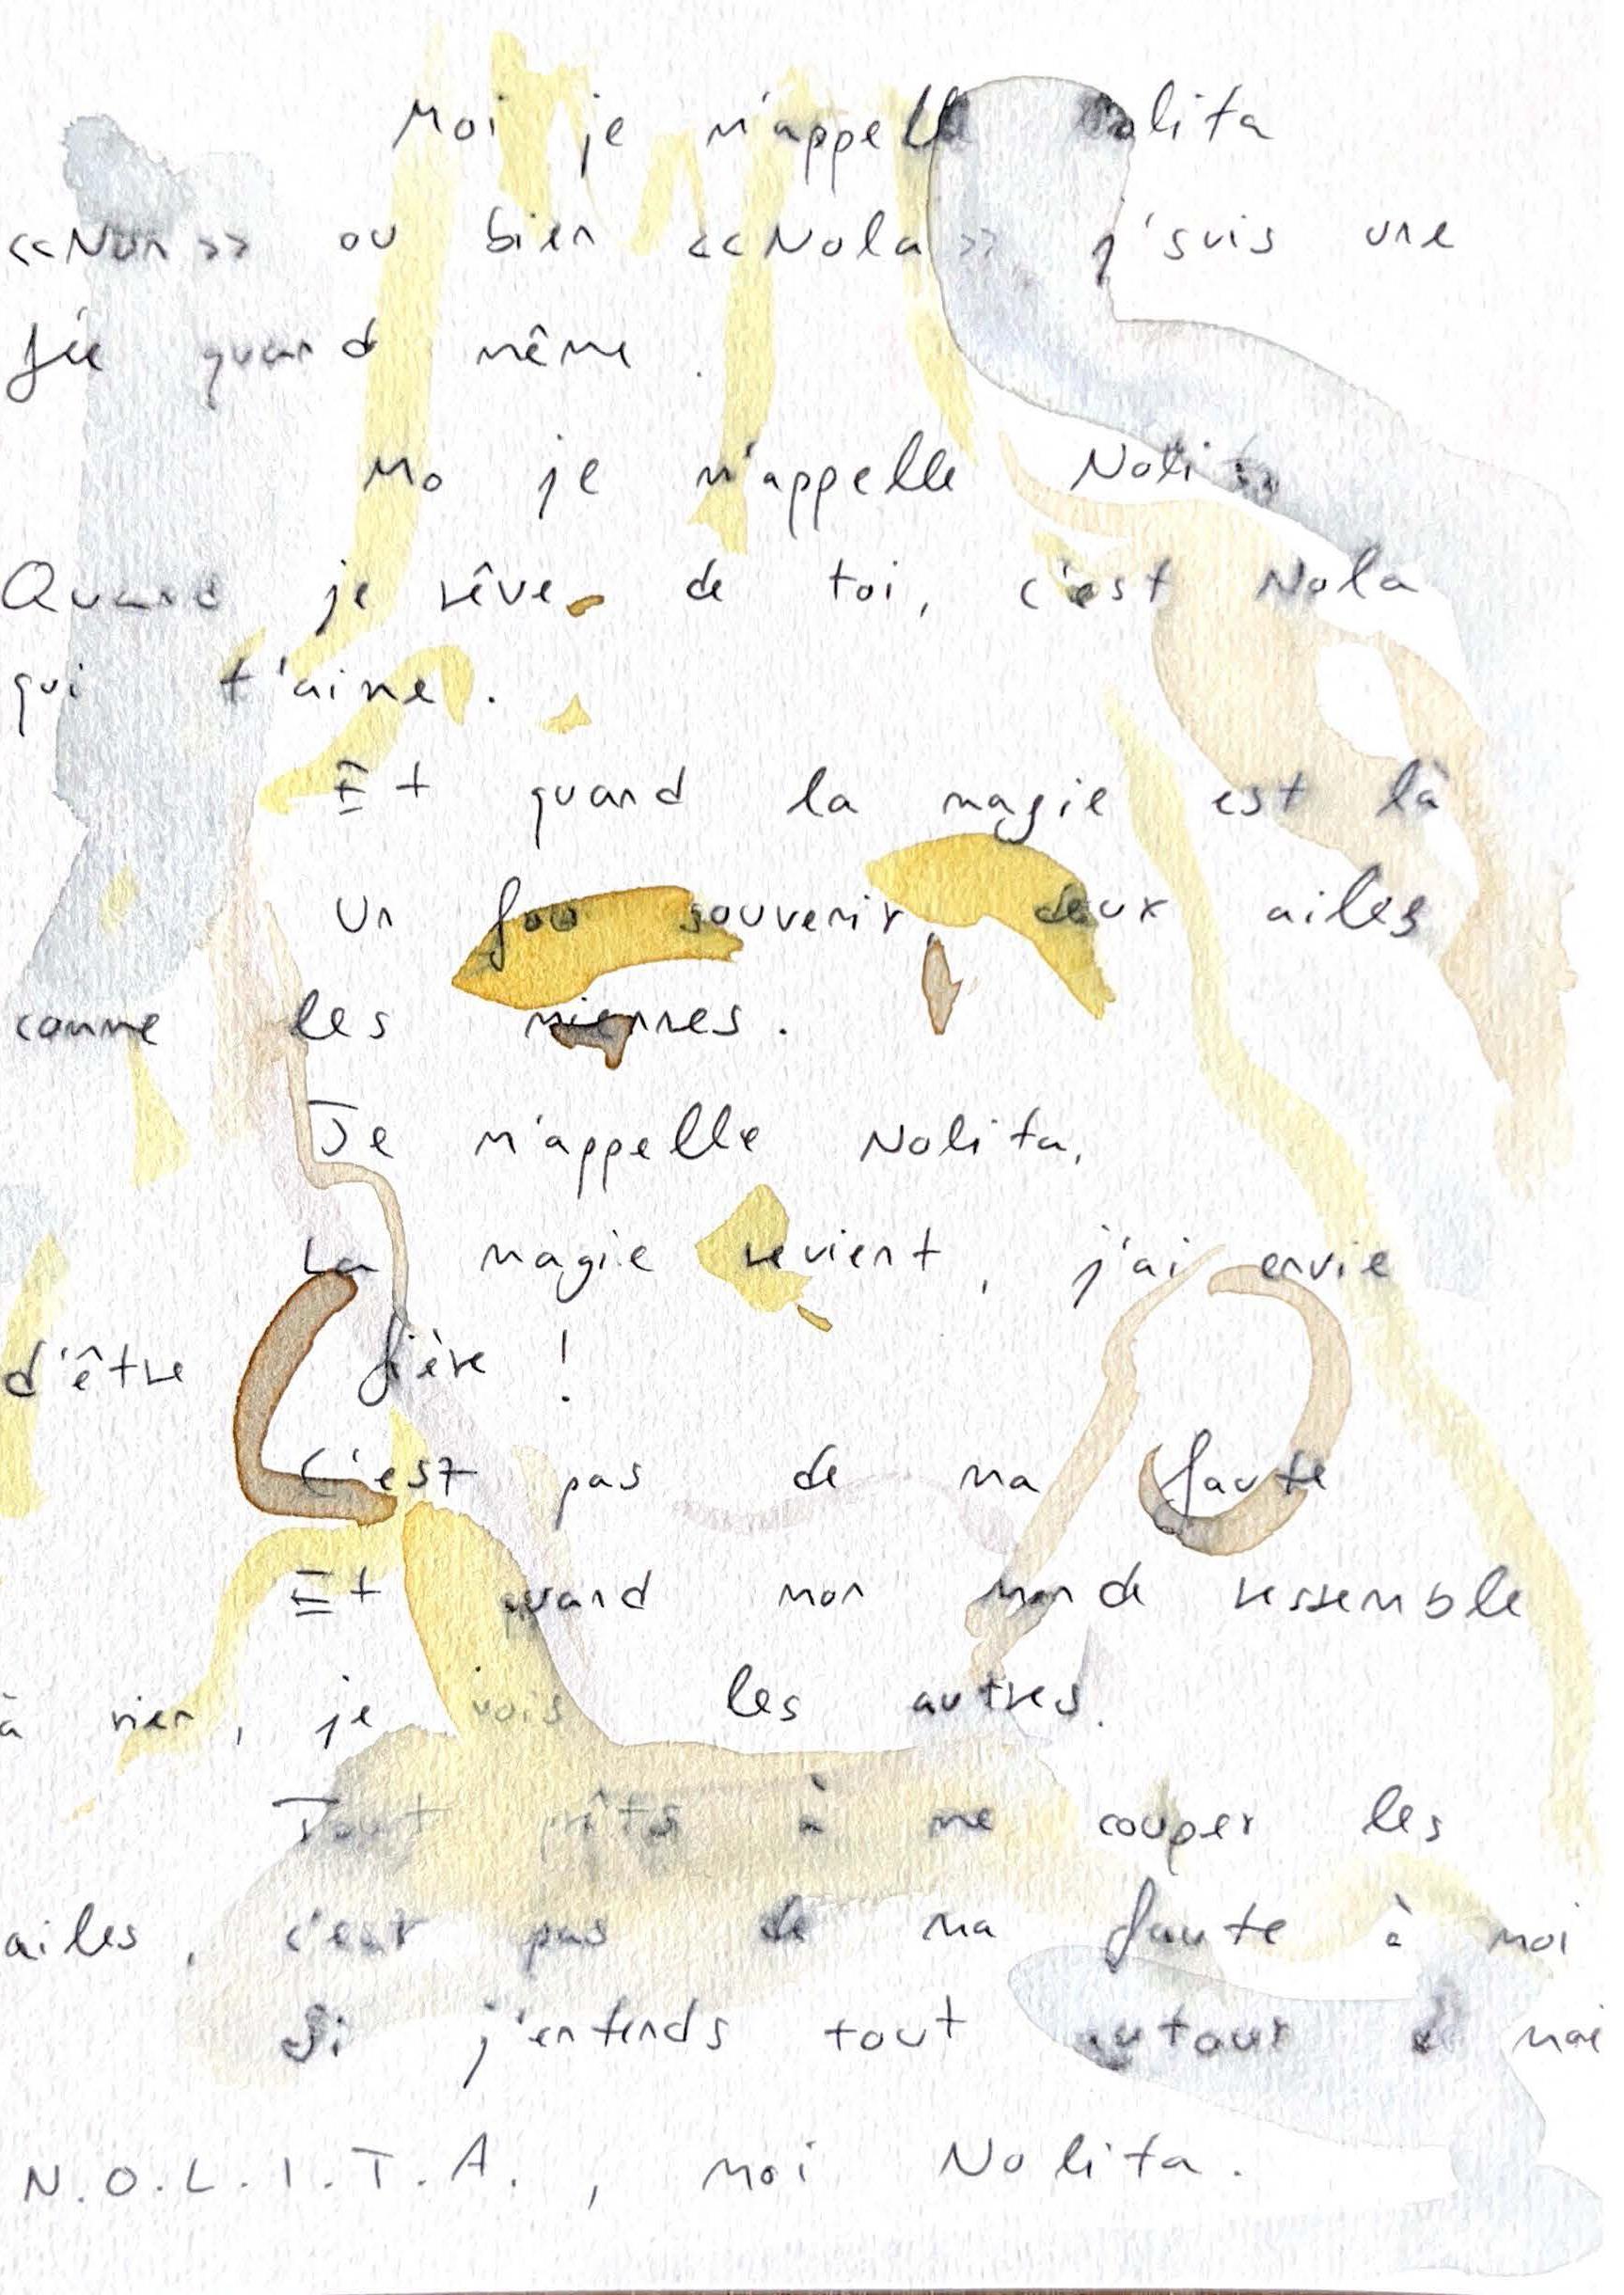 Moi je m'appelle Nolita
<<Non>> ou bien <<Nola>> j'suis une
fée quand même.
Mo je m'appelle Nolita
Quand je rêve de toi, c'est Nola
qui t'aime.
Et quand la magie est là
Un fou souvenir deux ailes
comme les miennes.
Je m'appelle Nolita,
La magie revient, j'ai envie
d'être fière !
C'est pas de ma faute
Et quand mon monde ressemble
à rien, je vois les autres.
Tout prêts à me couper les
ailes, c'est pas de ma faute à moi
Si j'entends tout autour de moi
N.O.L.I.T.A., moi Nolita.